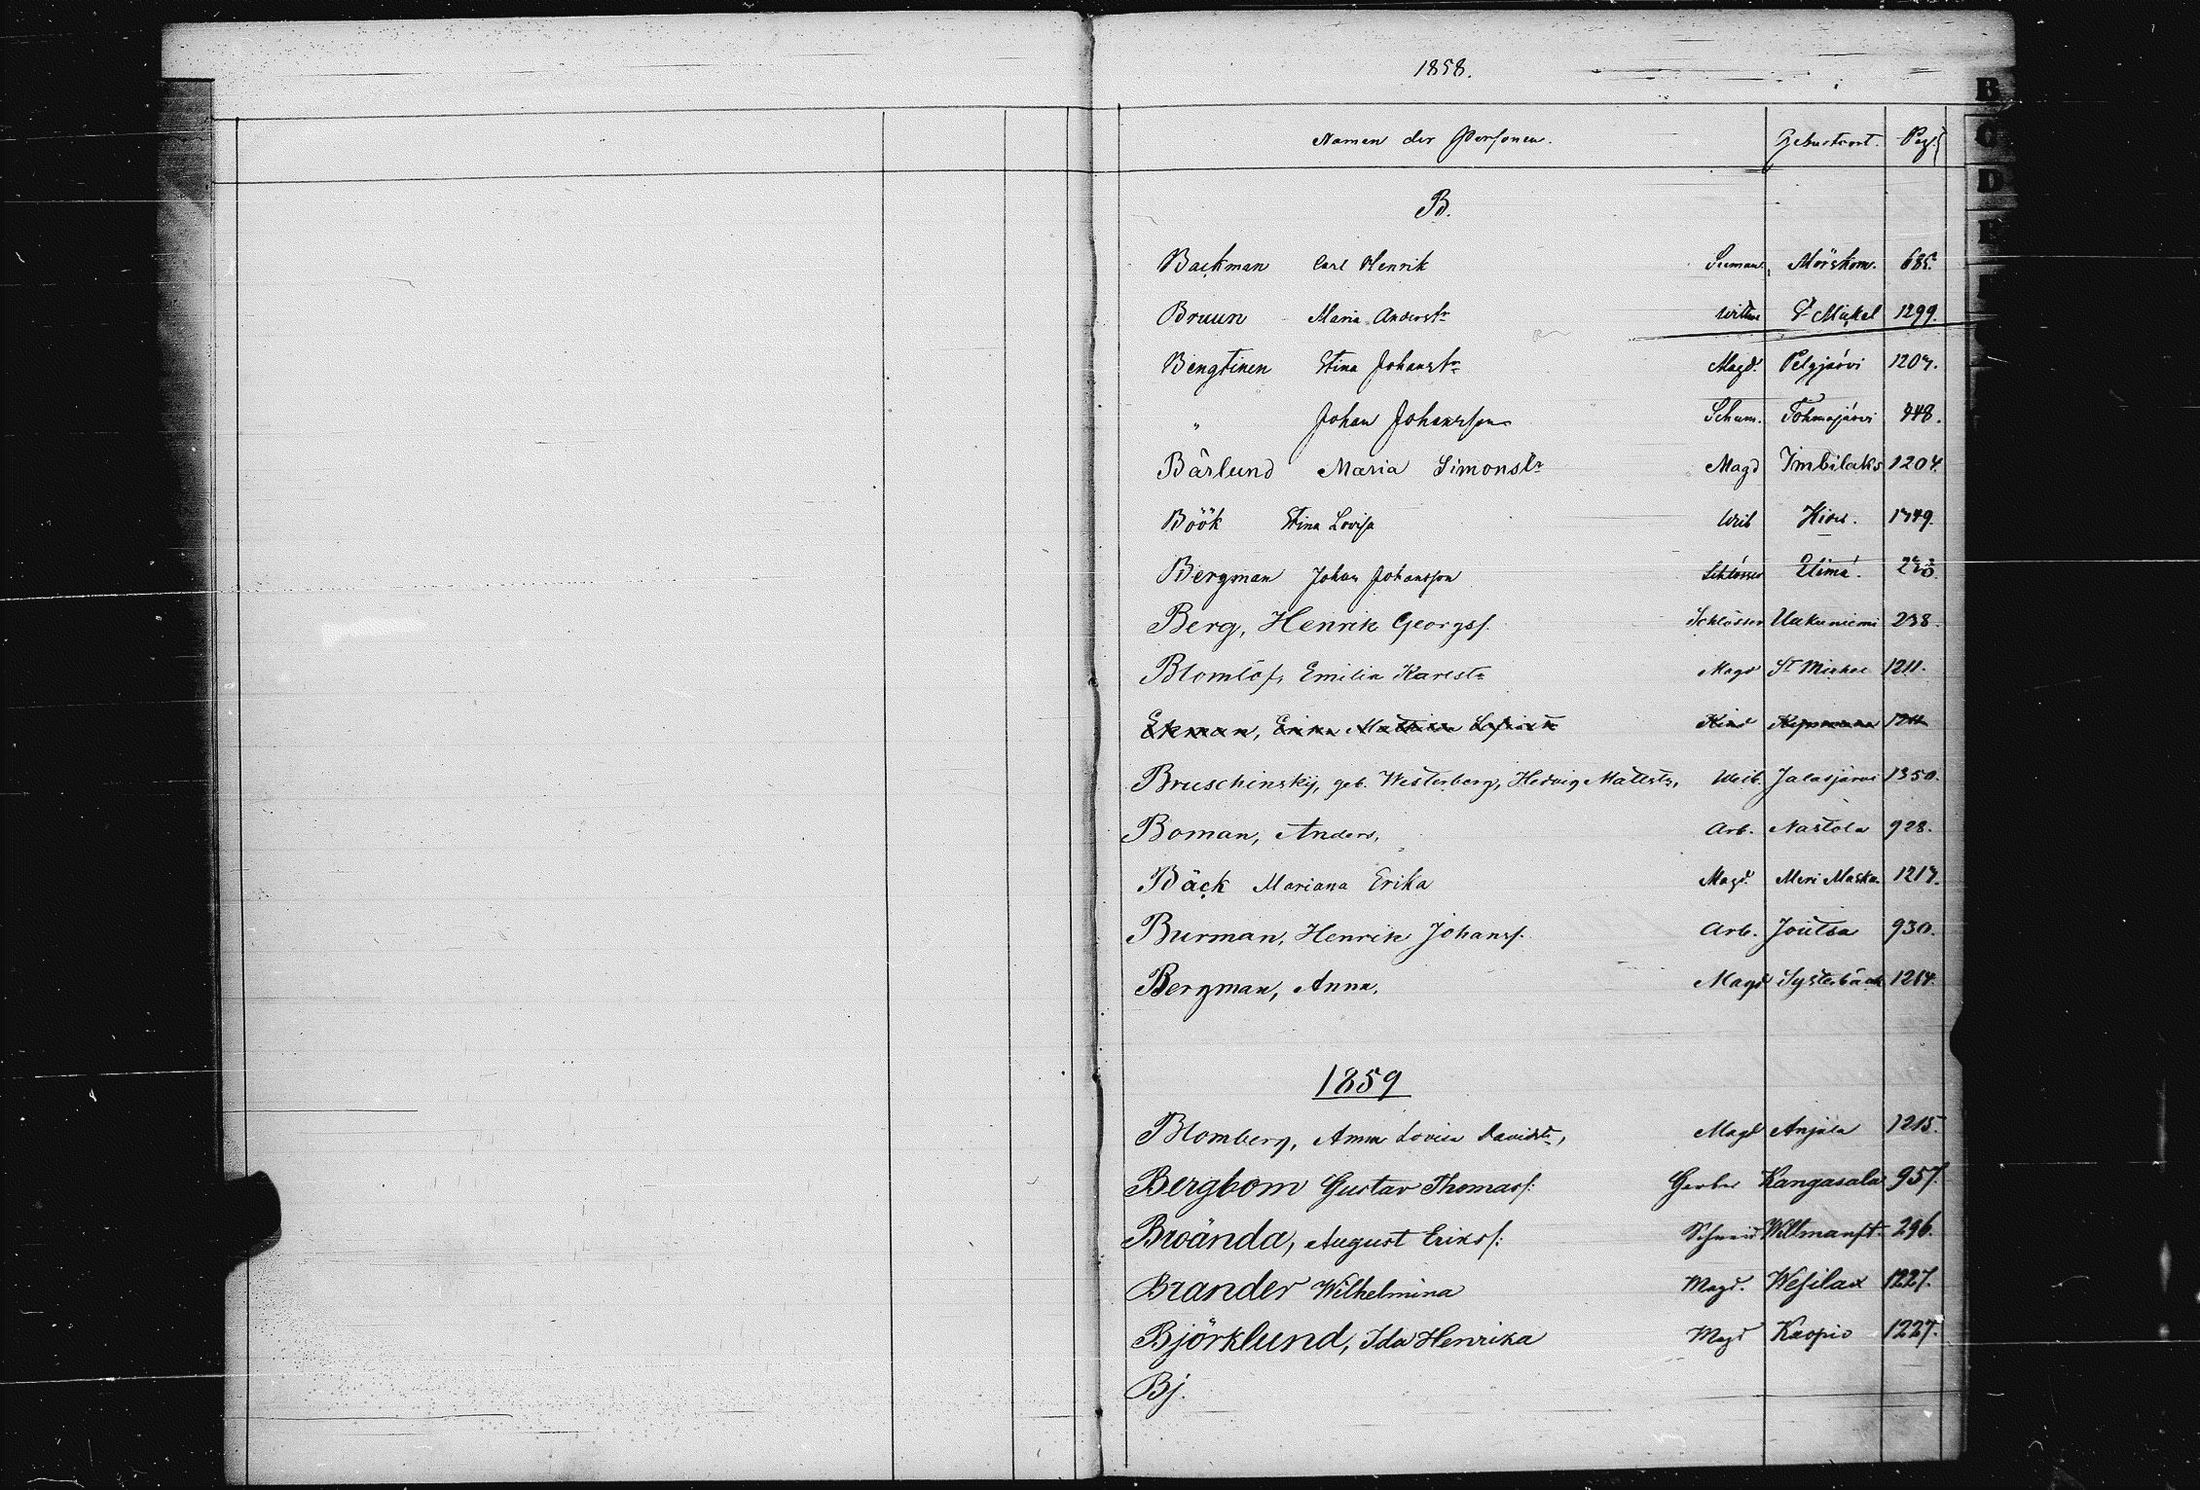 1858.
Namen der Personen. Geburtsort. Pag.
B.
Backman Carl Henrik Seeman. Mörskom. 685.
Bruun Maria Anderstr Wittwe St Mickel 1299.
Bengtinen Stina Johanstr Magd. Pelgjärvi 1207.
" Johan Johansson Schum. Tohmajärvi 748.
Bärlund Maria Simonstr Magd Imbilaks 1204.
Böök Stina Lovisa Weib 1749.
Bergman Johan Johansson Schlösser Elimä.
Berg, Henrik Georgss. Schlösser Uukuniemi 238.
Blomlöf, Emilia Karlstr Magd St Michel 1211.
Ekman, Erika Kind 1211
Bruschinskij, geb. Westerberg, Hedvig Mattstr, Weib. Jalasjärvi 1350.
Boman, Anders, Arb. Nastola 928.
Bäck Mariana Erika Magd. Meri Maska 1217.
Burman, Henrik Johanss. Arb. Joutsa 930.
Bergman, Anna. Magd Systerbäck 1214.
1859
Blomberg, Anna Lovisa Davidstr, Magd Anjala 1215.
Bergbom Gustav Thomass: Gerber Kangasala 957.
Broända, August Erikss: Schneid Willmanst. 296.
Brander Wilhelmina Magd. Wesilax 1227.
Björklund, Ida Henrika Magd Kuopio 1227.
Bj.
B
C
D